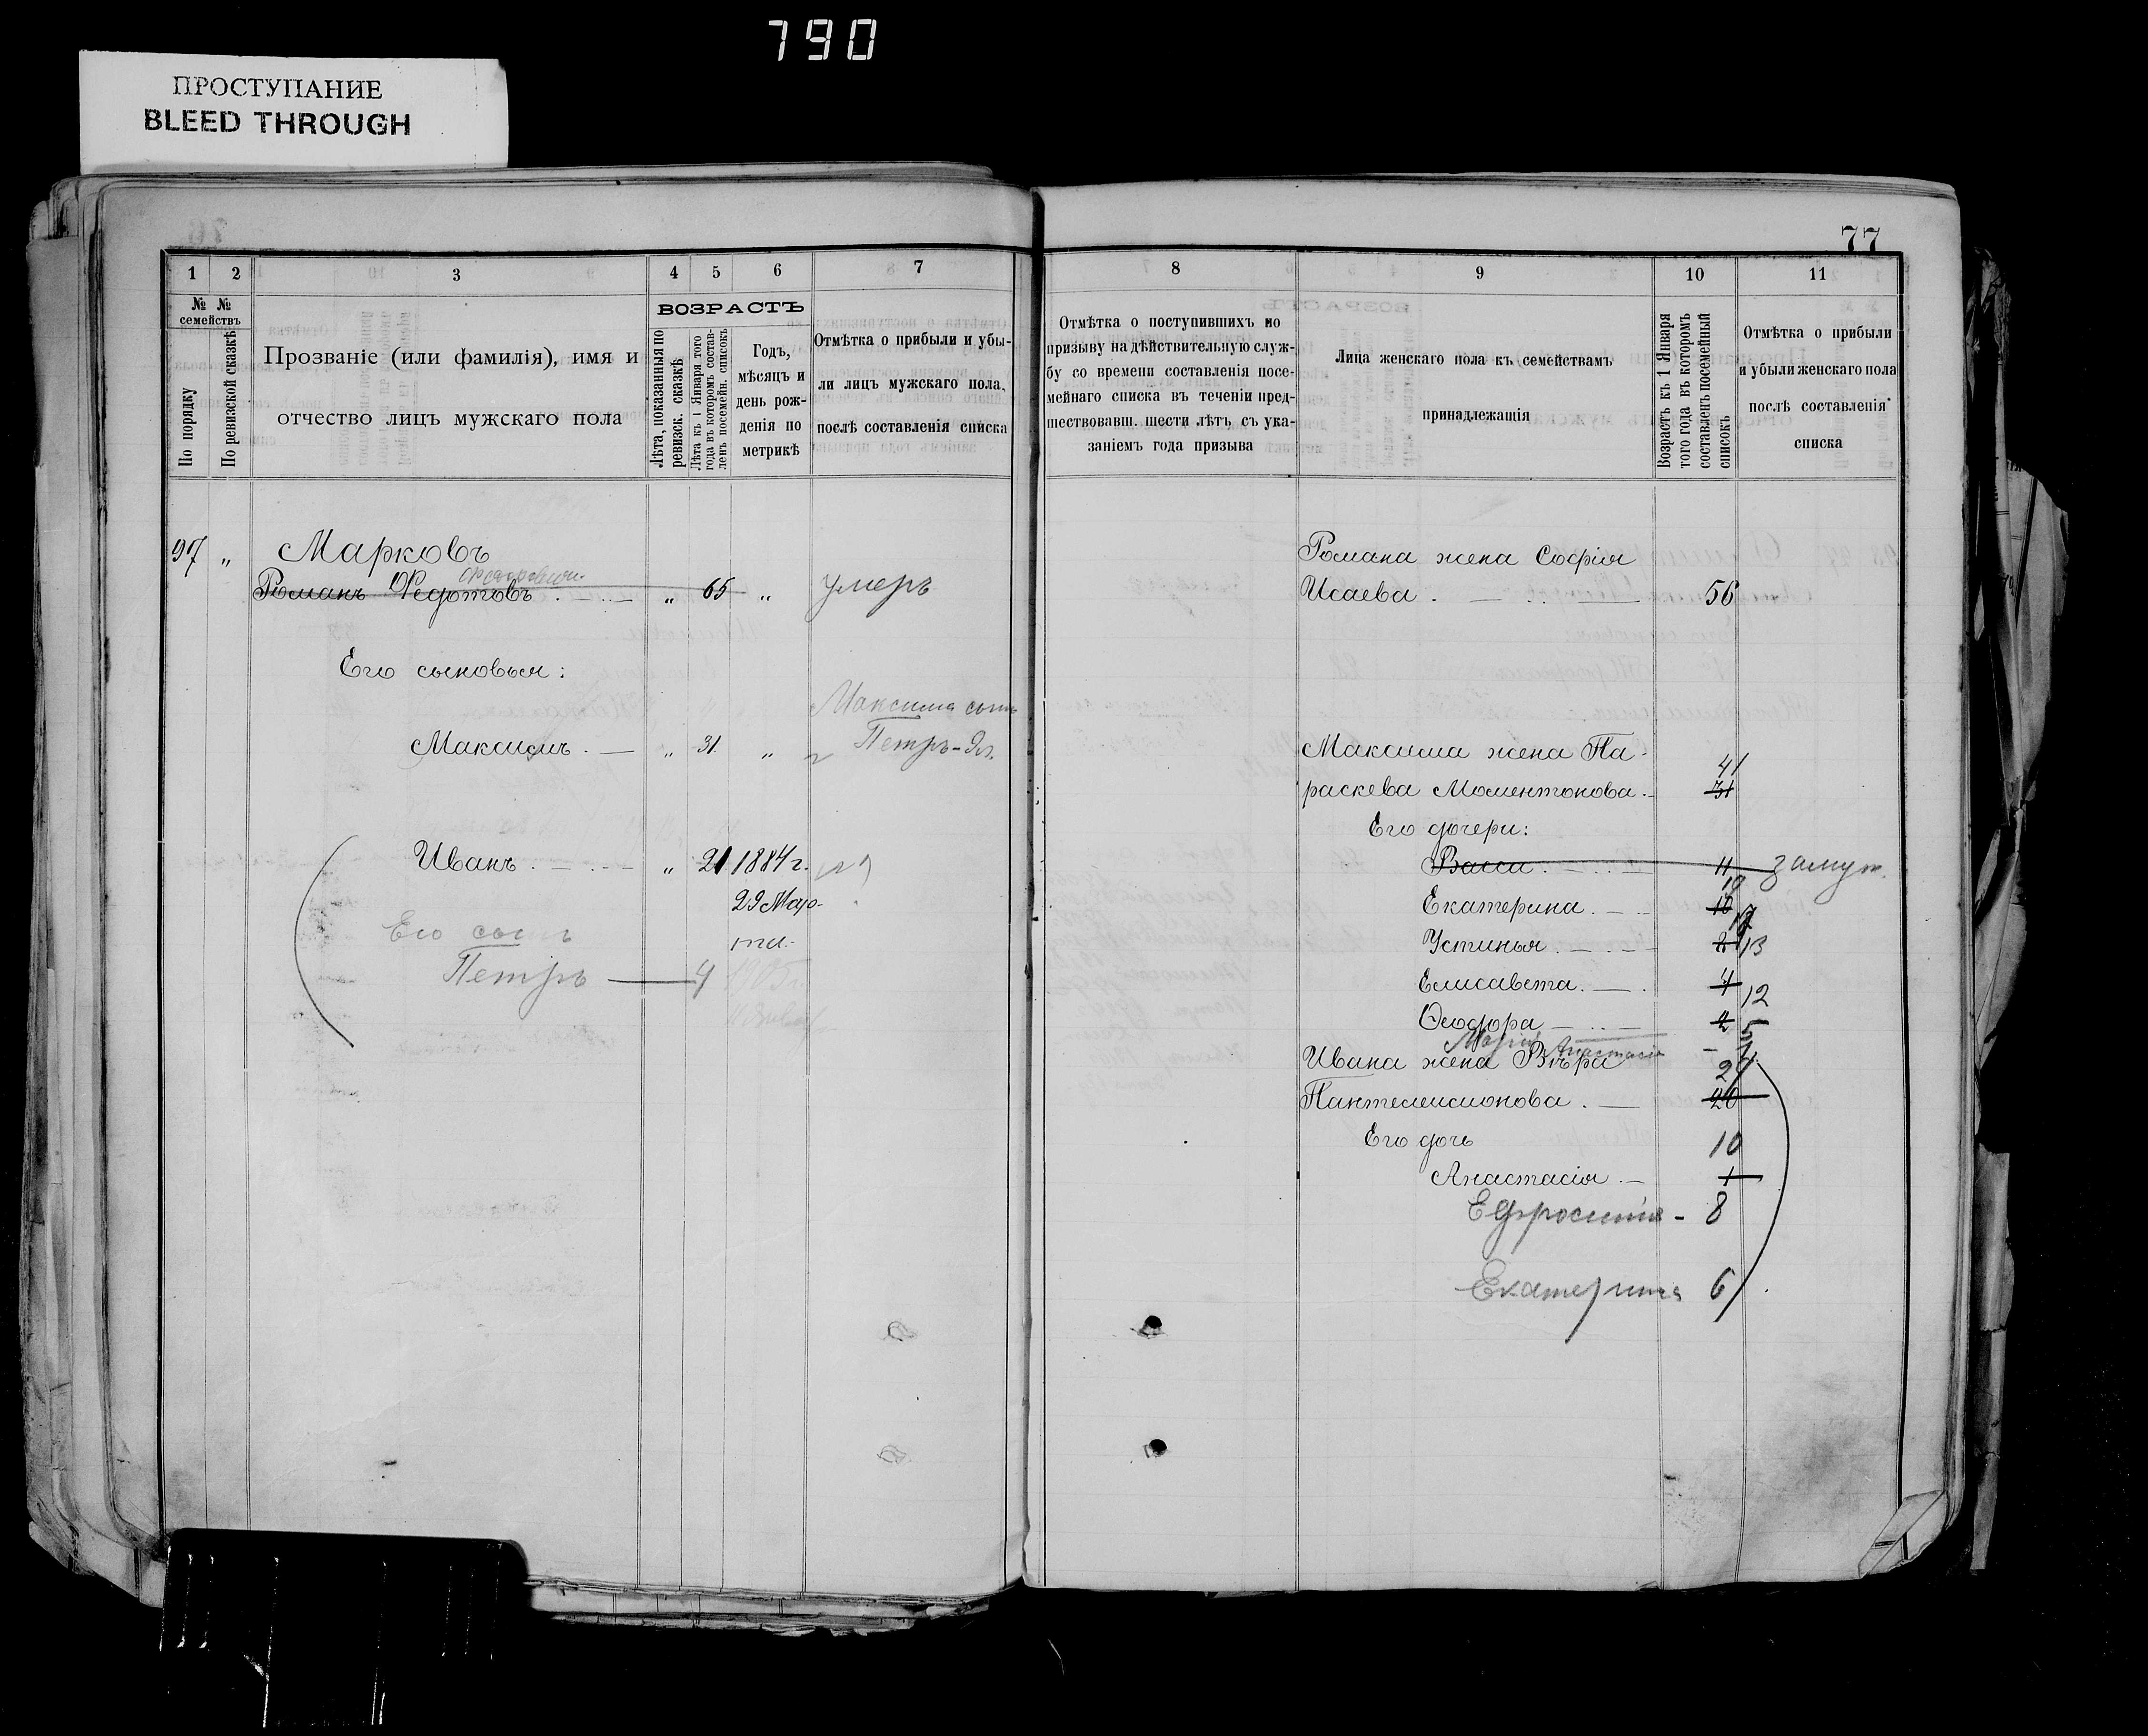 790
ПРОСТУПАНИЕ
BLEED THROUGH
77
1 2 3 4 5 6 7
№ № семействъ
По порядку
По ревизской сказкѣ
Прозваніе (или фамилія), имя и
отчество лицъ мужскаго пола
ВОЗРАСТЪ
Лѣта, показанныя по
ревизск. сказкѣ
Лѣта къ 1 Января того
года въ которомъ состав-
ленъ посемейн. списокъ
Годъ,
мѣсяцъ и
день рож-
денія по
метрикѣ
Отмѣтка о прибыли и убы-
ли лицъ мужскаго пола,
послѣ составленія списка
97 „ Марковъ
Романъ Ѳедотовъ . — „ 65 „ умеръ
Его сыновья:
Максима сынъ
Максимъ . — „ 31. „ Петръ
Иванъ . — . — „ 21 1884 г.
29 Мар-
та.
Его сынъ
Петръ — 4 1905 г.
8 9 10 11
Отмѣтка о поступившихъ по
призыву на дѣйствительную служ-
бу со времени составленія посе-
мейнаго списка въ теченіи пред-
шествовавш. шести лѣтъ, съ ука-
заніемъ года призыва
Лица женскаго пола къ семействамъ
принадлежащія
Возрастъ къ 1 Января
того года въ которомъ
составленъ посемейный
списокъ
Отмѣтка о прибыли
и убыли женскаго пола
послѣ составленія
списка
Романа жена Софія
Исаева . — . . — 56
Максима жена Па-
41
раскева Моментонова . — 31
Его дочери:
Васса . — . . — 11 замуж.
Екатерина . — . 10
17
Устинья . — . . — 8 13
Елисавета . — . 4
12
Ѳеодора — . . — 2 5
Марія Анастасія
Ивана жена Вѣра
Пантелеимонова . — 20
Его дочь 10
Анастасія . — 1
Ефросинія - 8
Екатерина 6